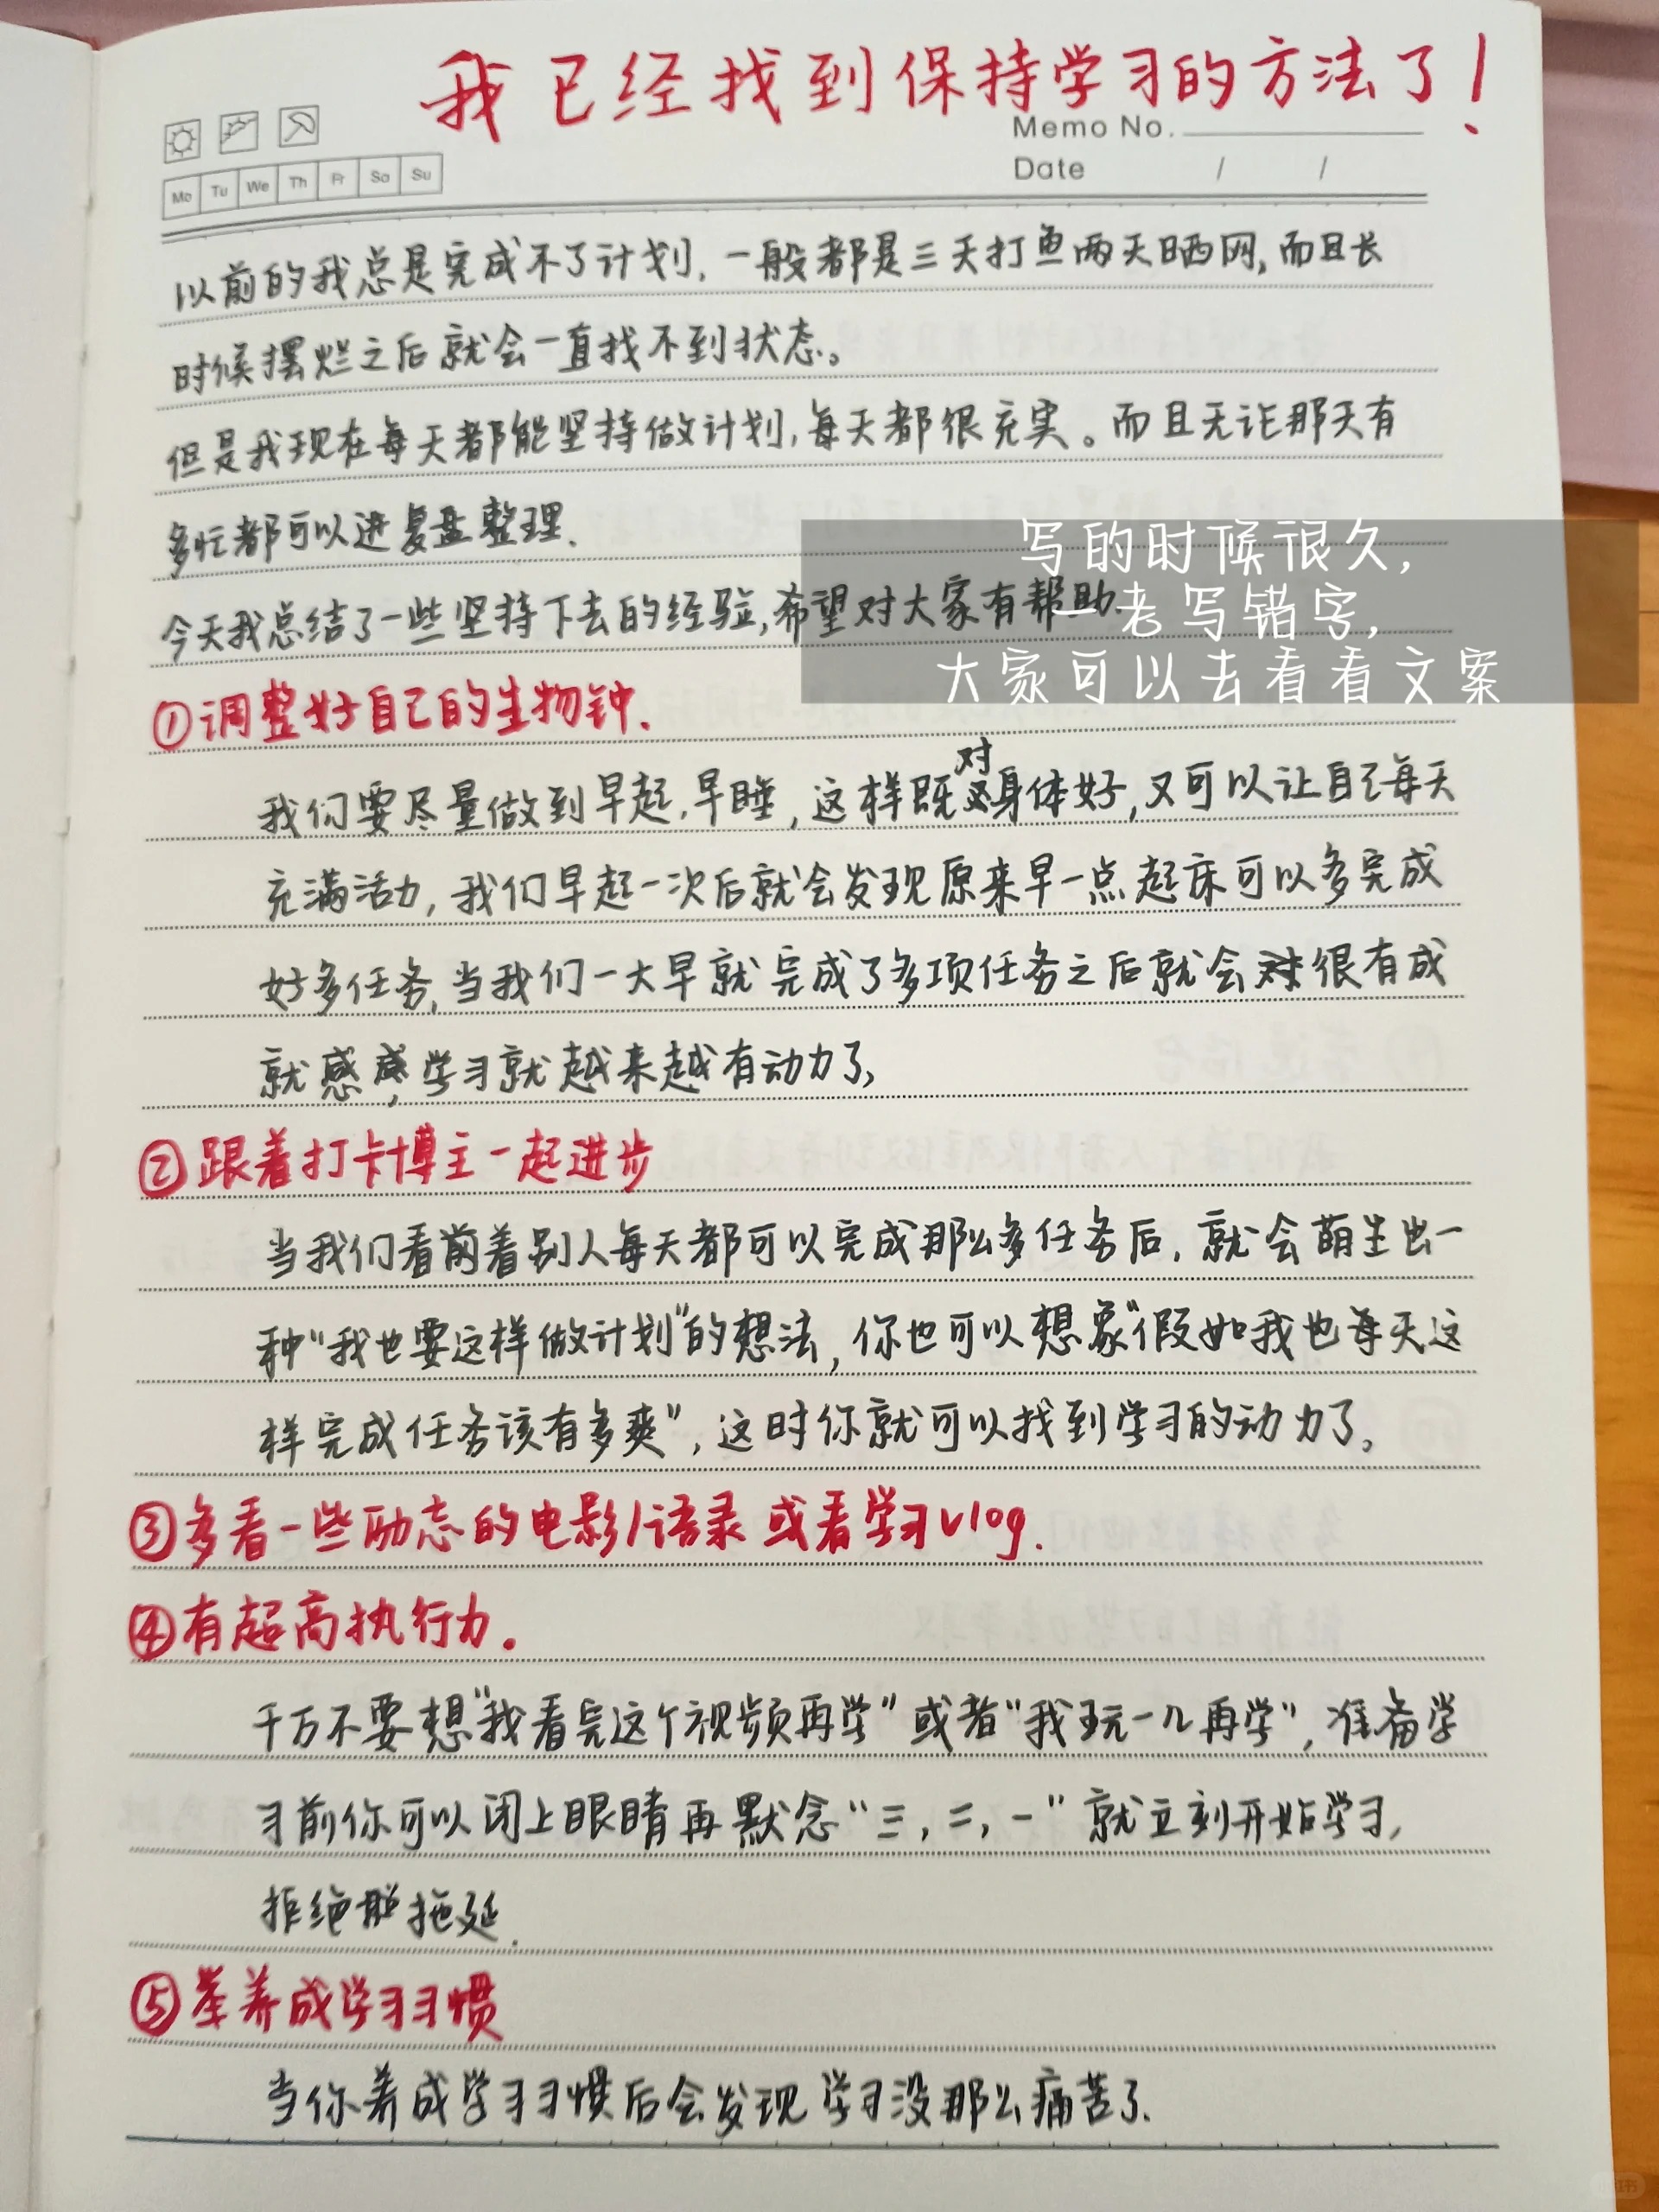 我已经找到保持学习的方法了！
Memo No.
Mo Tu We Th Fr Sa Su
Date / /
以前的我总是完成不了计划，一般都是三天打鱼两天晒网，而且长
时候摆烂之后就会一直找不到状态。
但是我现在每天都能坚持做计划，每天都很充实。而且无论那天有
多忙都可以进复盘整理.
写的时候很久，
今天我总结了一些坚持下去的经验，希望对大家有帮助.
老写错字，
大家可以去看看文案
①调整好自己的生物钟.
我们要尽量做到早起.早睡，这样既对身体好，又可以让自己每天
充满活力，我们早起一次后就会发现原来早一点起床可以多完成
好多任务，当我们一大早就完成了多项任务之后就会很有成
就感，学习就越来越有动力了，
②跟着打卡博主一起进步
当我们看着别人每天都可以完成那么多任务后，就会萌生出一
种“我也要这样做计划”的想法，你也可以想象“假如我也每天这
样完成任务该有多爽”，这时你就可以找到学习的动力了。
③多看一些励志的电影/语录 或看学习vlog.
④有超高执行力.
千万不要想“我看完这个视频再学”或者“我玩一儿再学”，准备学
习前你可以闭上眼睛再默念“三，二，一”就立刻开始学习，
拒绝拖延.
⑤养成学习习惯
当你养成学习习惯后会发现学习没那么痛苦了.